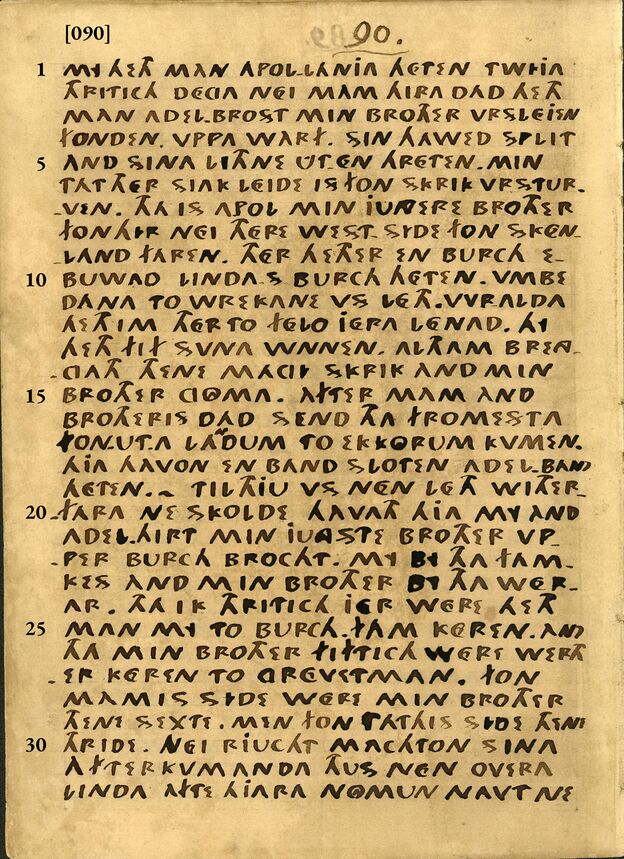 [090]
90.
1 MY HETH MAN APOL.LANIA HETEN TWYIA
THRITICH DEGA NEI MAM HIRA DAD HETH
MAN ADEL.BROST MIN BROTHER VRSLEIEN
FONDEN. VPPA WARF. SIN HAWED SPLIT
5 AND SINA LITHNE UT.EN HRETEN. MIN
TAT THER SIAK LEIDE IS FON SKRIK VRSTUR.
.VEN. THA IS APOL MIN IUNGERE BROTHER
FON HIR NEI THERE WEST.SIDE FON SKEN.
.LAND FAREN. THER HETH ER EN BURCH E.
10 BUWAD LINDA.S BURCH HETEN. VMBE
DANA TO WREKANE VS LETH. WRALDA
HETH IM THER TO FELO IERA LENAD. HI
HETH FIF SUNA WNNEN. ALTHAM BRENG.
GATH THENE MAGIY SKRIK AND MIN
15 BROTHER GOMA. AFTER MAM AND
BROTHERIS DAD SEND THA FROMESTA
FON.UT.A LANDUM TO EKKORUM KVMEN.
HIA HAVON EN BAND SLOTEN ADEL.BAND
HETEN.~ TIL THIU VS NEN LETH WITHER.
20 .FARA NE SKOLDE HAVATH HIA MY AND
ADEL.HIRT MIN IUNGSTE BROTHER VP.
.PER BURCH BROCHT. MY BY THA FAM.
.KES AND MIN BROTHER BY THA WER.
.AR. THA IK THRITICH IER WERE HETH
25 MAN MY TO BURCH.FAM KEREN. AND
THA MIN BROTHER FIFTICH WERE WERTH
.ER KEREN TO GREVETMAN. FON
MAM IS SIDE WERE MIN BROTHER
THENE SEXTE. MEN FON TATHIS SIDE THENE
30 THRIDE. NEI RIUCHT MACHTON SINA
AFTERKVMANDA THUS NEN OVERA
LINDA AFTE HIARA NOMUN NAVT NE